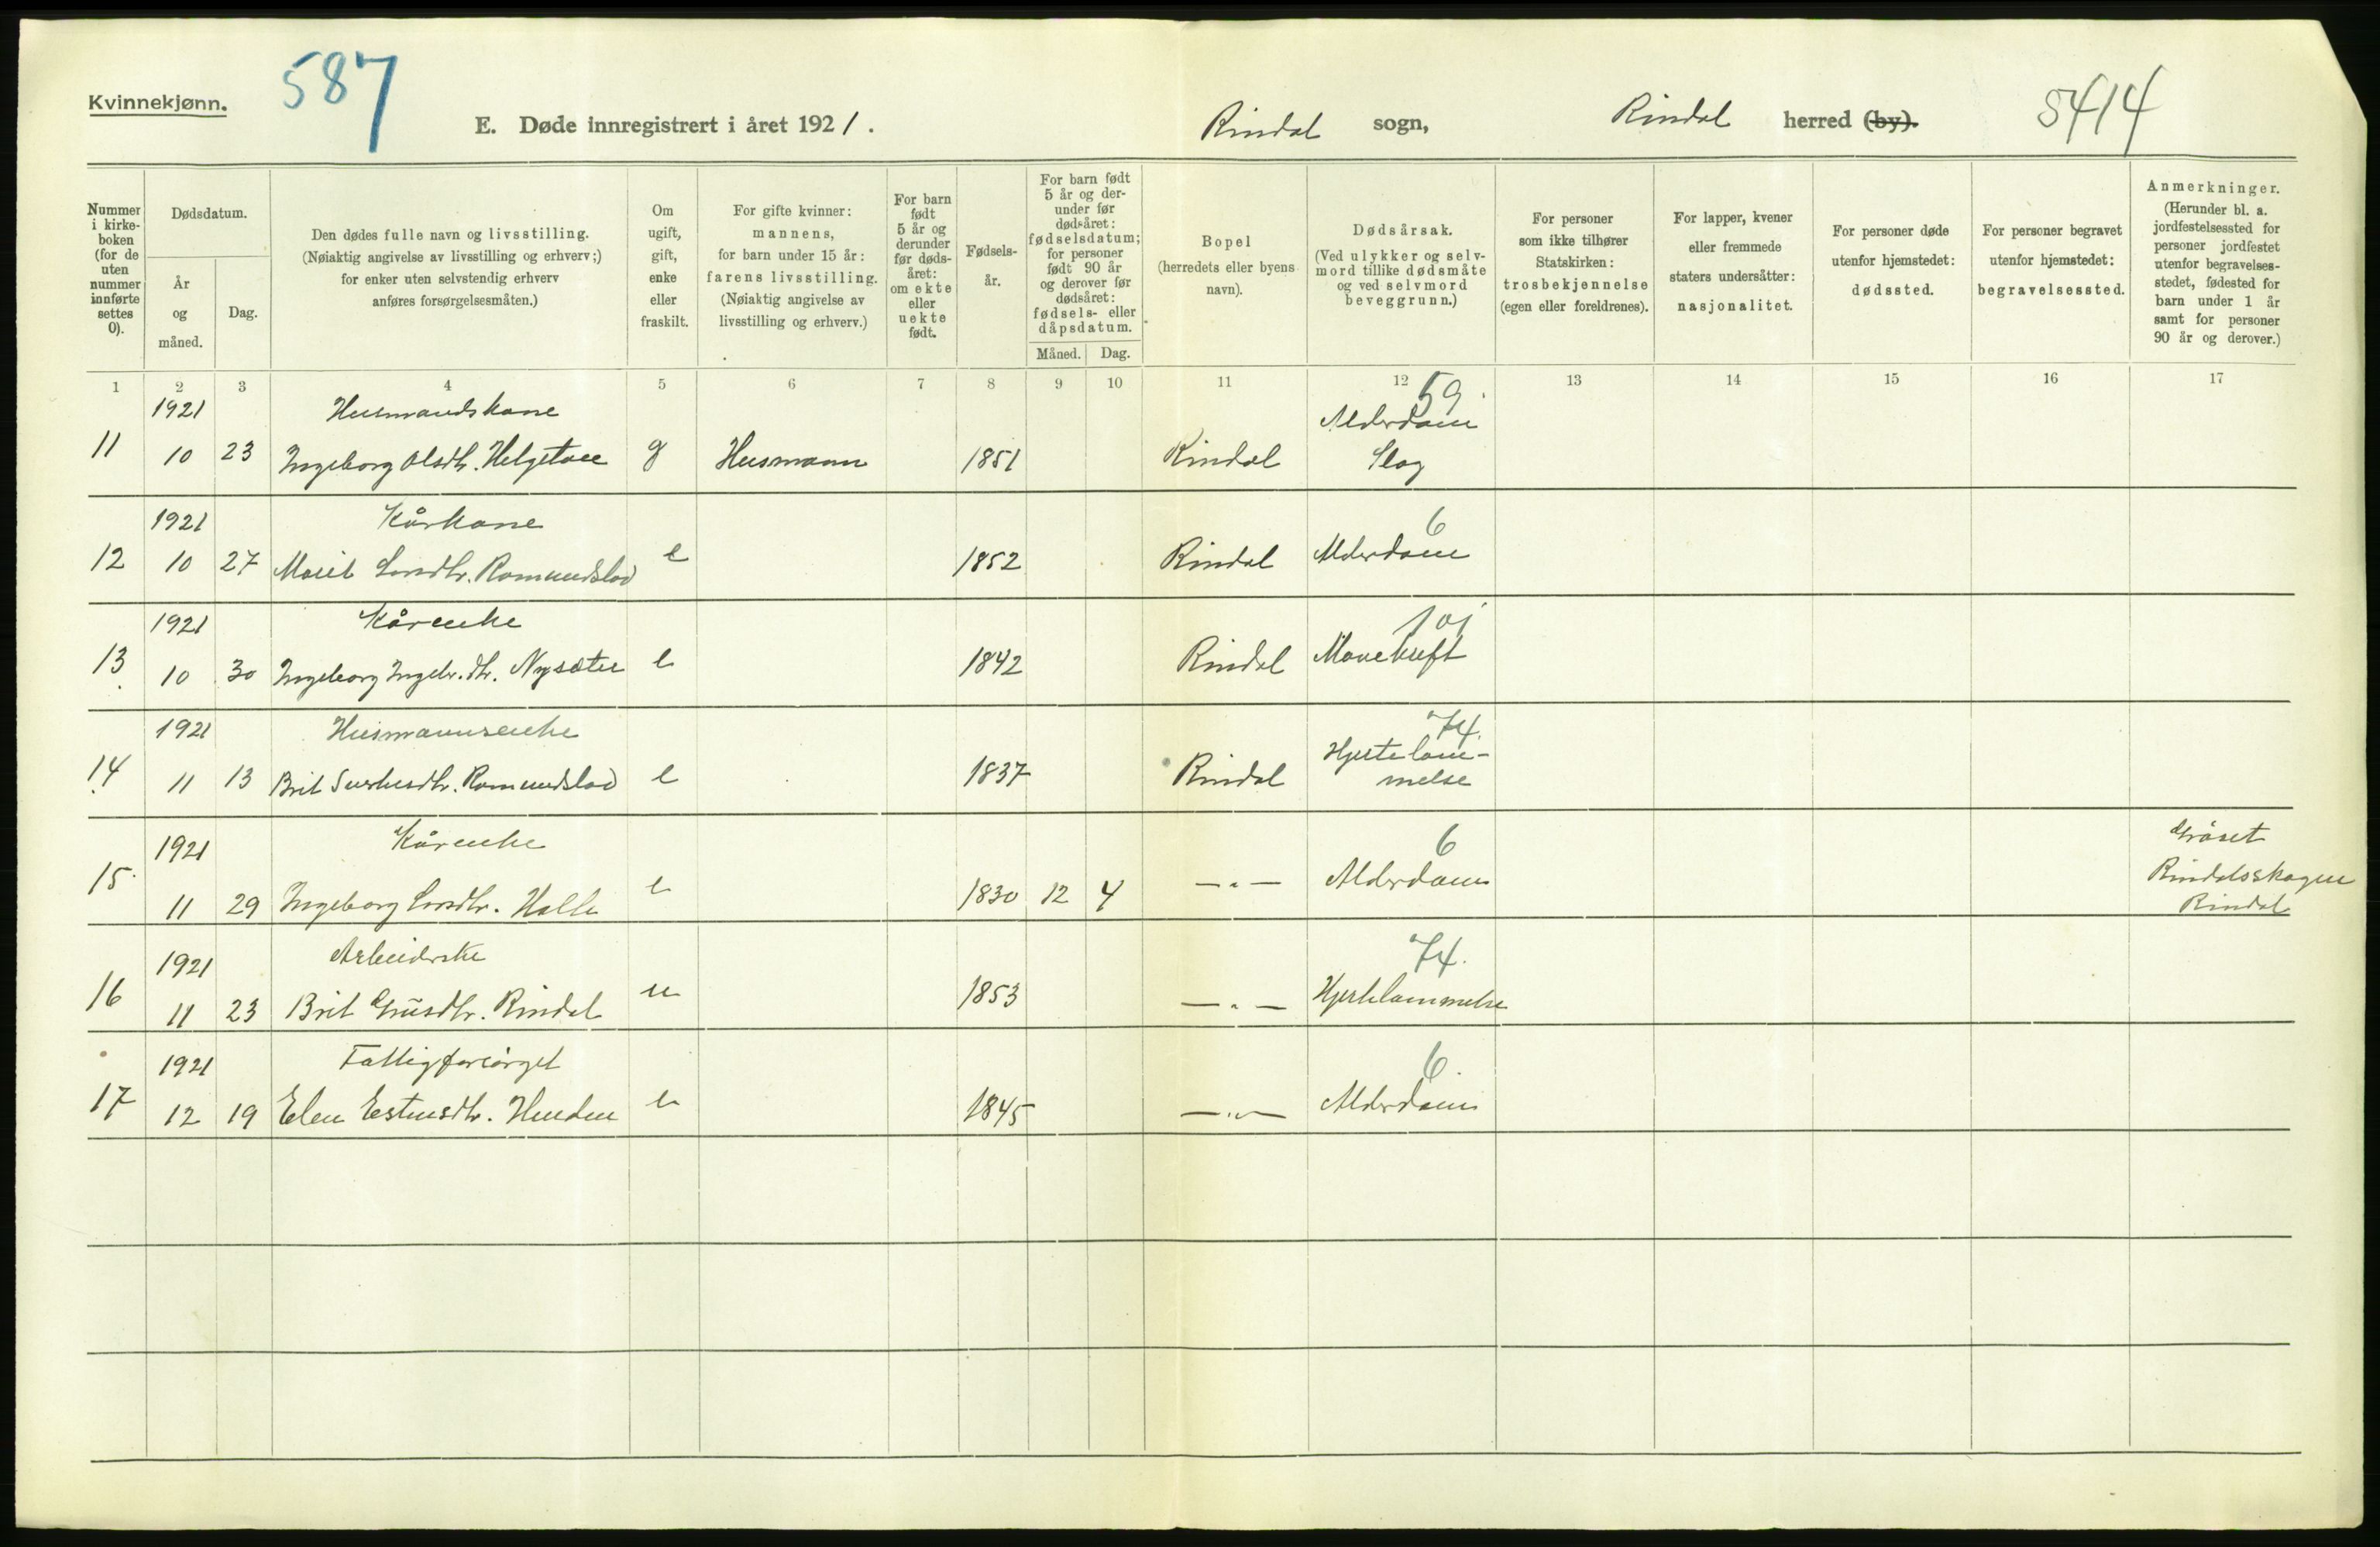 Kvinnekjønn.
587
E. Døde innregistrert i året 1921.
Rindal sogn,
Rindal herred (by).
5414
Nummer i kirke-boken (for de uten nummer innførte settes 0).
Dødsdatum.
År og måned.
Dag.
Den dødes fulle navn og livsstilling.
(Nøiaktig angivelse av livsstilling og erhverv;)
for enker uten selvstendig erhverv
anføres forsørgelsesmåten.)
Om ugift, gift, enke eller fraskilt.
For gifte kvinner: mannens,
for barn under 15 år:
farens livsstilling.
(Nøiaktig angivelse av
livsstilling og erhverv.)
For barn født 5 år og derunder før døds-året: om ekte eller uekte født.
Fødsels-år.
For barn født 5 år og der-under før dødsåret: fødselsdatum; for personer født 90 år og derover før dødsåret: fødsels- eller dåpsdatum.
Måned.
Dag.
Bopel
(herredets eller byens navn).
Dødsårsak.
(Ved ulykker og selv-mord tillike dødsmåte og ved selvmord beveggrunn.)
For personer som ikke tilhører Statskirken:
trosbekjennelse
(egen eller foreldrenes).
For lapper, kvener eller fremmede staters undersåtter:
nasjonalitet.
For personer døde utenfor hjemstedet:
dødssted.
For personer begravet utenfor hjemstedet:
begravelsessted.
Anmerkninger.
(Herunder bl. a. jordfestelsessted for personer jordfestet utenfor begravelses-stedet, fødested for barn under 1 år samt for personer 90 år og derover.)
1 2 3 4 5 6 7 8 9 10 11 12 13 14 15 16 17
1921 Husmandskone 59
11 10 23 Ingeborg Olsdtr. g Husmann 1851 Rindal Alderdom
Slag
1921 Kårkone 6
12 10 27 Marit Larsdtr. Romundstad e 1852 Rindal Alderdom
1921 Kårenke 101
13 10 30 Ingeborg Ingebr.dtr. Nysæter e 1842 Rindal Mavekreft
1921 Husmannsenke 74.
14 11 13 Brit Romundstad e 1837 Rindal Hjertelam-
melse
1921 Kårenke 6 Gråset
15 11 29 Ingeborg Larsdtr. Halle e 1830 12 4 —"— Alderdom Rindalsskogen
Rindal
1921 Arbeiderske 74.
16 11 23 Brit Rindal u 1853 —"— Hjertelammelse
1921 Fattigforsørget 6.
17 12 19 Elen Estensdtr. e 1845 —"— Alderdom